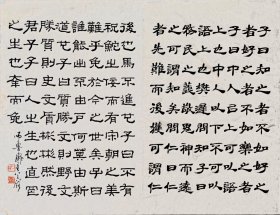 子曰知之者不如好之
者好之者不如樂之者
子曰中人以上可以
語上也中人以下不可以
語上也樊遲問知子曰
務民之義敬鬼神而遠
之可謂知矣問仁曰仁
者先難而後獲可謂仁
後也馬不進也子曰不有
祝鮀之佞而有宋朝之美
難乎免於今之世矣子曰
誰能出不由戶何莫由斯
道也子曰質勝文則野文
勝質則史文質彬彬然後
君子子曰人之生也直罔
之生也幸而免